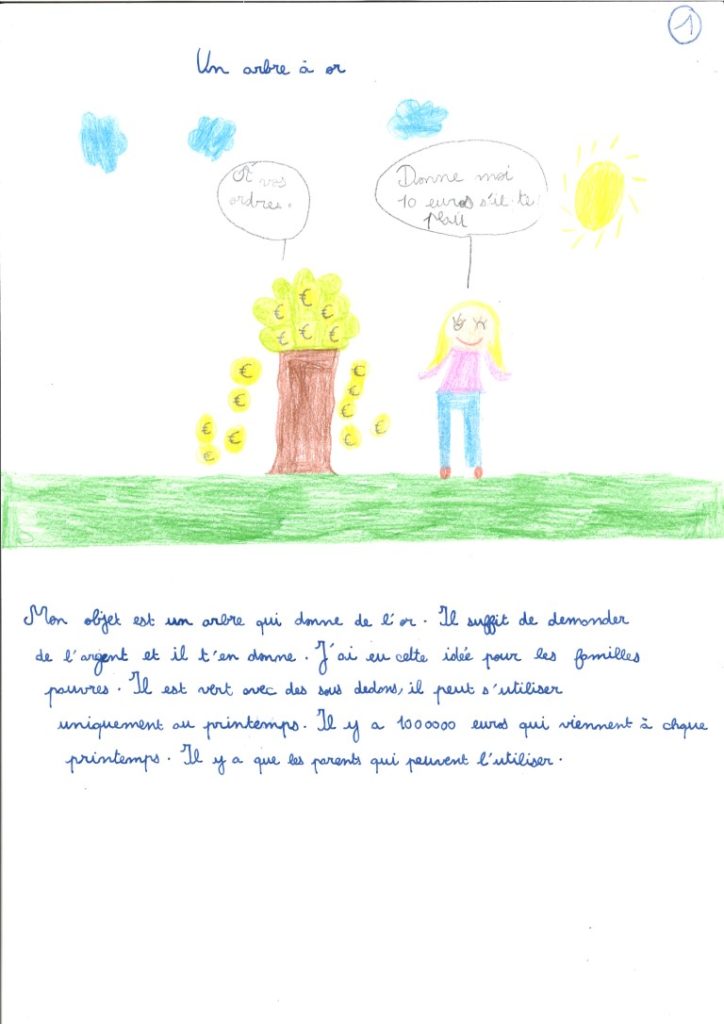 1
Un arbre à or
À vos
ordres.
Donne moi
10 euros s'il-te
plaît
€ € € € € €
€ € € € €
€ € € € €
Mon objet est un arbre qui donne de l'or. Il suffit de demander
de l'argent et il t'en donne. J'ai eu cette idée pour les familles
pauvres. Il est vert avec des sous dedans, il peut s'utiliser
uniquement au printemps. Il y a 1000000 euros qui viennent à chque
printemps. Il y a que les parents qui peuvent l'utiliser.